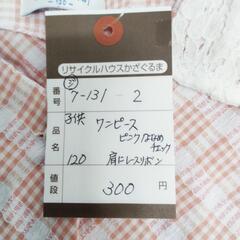 リサイクルハウスかざぐるま
番号 ㋣ 7-131-2
品名 子供 ワンピース
ピンクななめ
チェック
120 肩にレースリボン
値段 300円